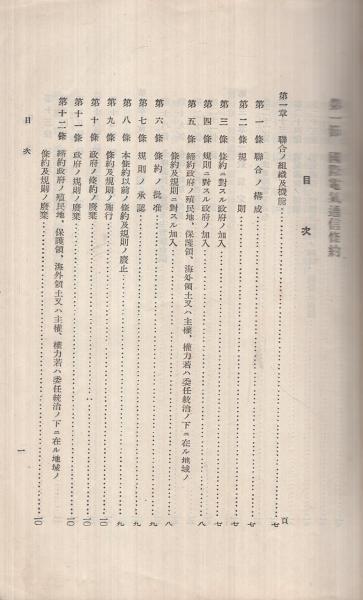 目次
頁
第一章 聯合ノ組織及機能……七
第一條 聯合ノ構成……七
第二條 規則……七
第三條 條約ニ對スル政府ノ加入……七
第四條 規則ニ對スル政府ノ加入……八
第五條 締約政府ノ殖民地、保護領、海外領土又ハ主權、權力若ハ委任統治ノ下ニ在ル地域ノ
條約及規則ニ對スル加入……八
第六條 條約ノ批准……九
第七條 規則ノ承認……九
第八條 本條約以前ノ條約及規則ノ廢止……九
第九條 條約及規則ノ施行……一〇
第十條 政府ノ條約ノ廢棄……一〇
第十一條 政府ノ規則ノ廢棄……一〇
第十二條 締約政府ノ殖民地、保護領、海外領土又ハ主權、權力若ハ委任統治ノ下ニ在ル地域ノ
條約及規則ノ廢棄……一〇
目次
一